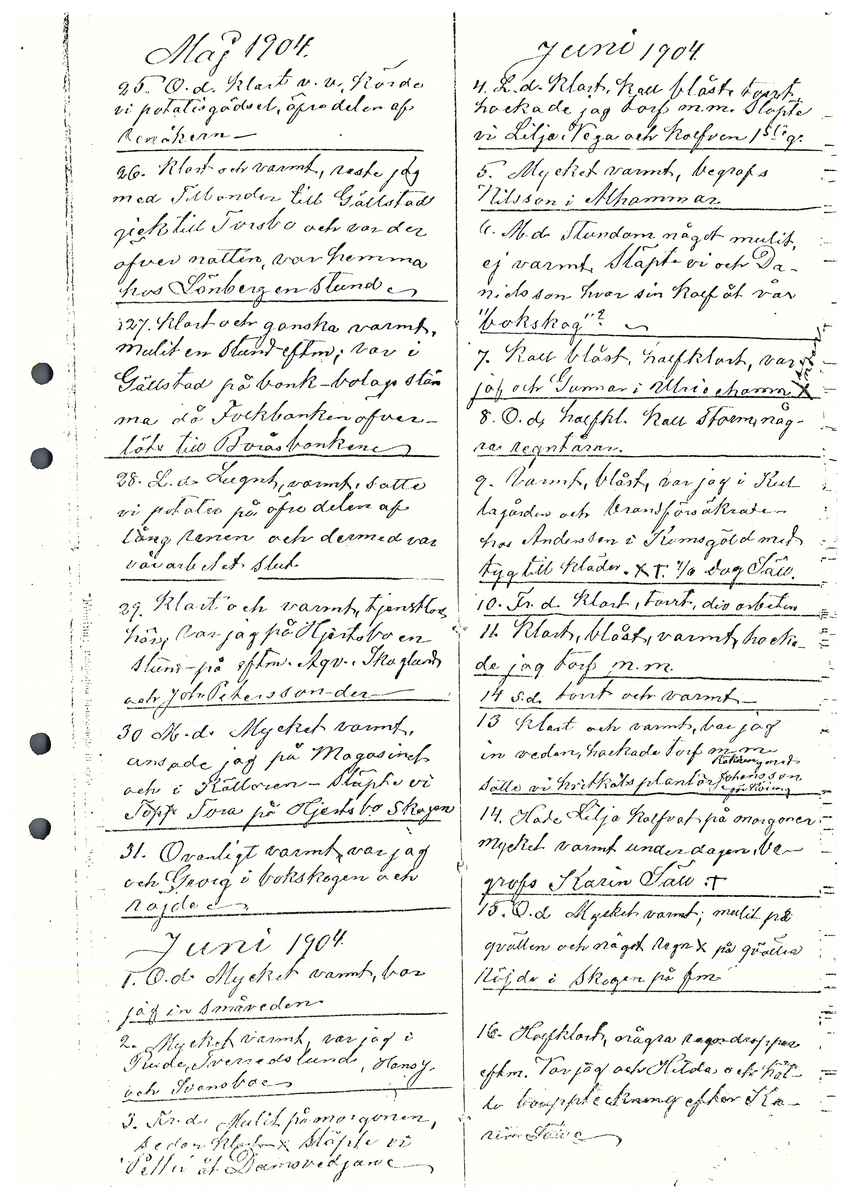 Maj 1904.
25. O.d. Klart v. v. Körde
vi potatisgödsel, öfre delen af
Renåkern —
26. Klart och varmt, reste jag
med Tilbander till Gällstad
gick till Torsbo och var der
öfver natten, var hemma
hos Lönberg en stund
27. Klart och ganska varmt,
mulit en stund eftm; var i
Gällstad på bank-bolags stäm
ma då Folkbanken öfver-
läts till Boråsbanken
28. L.d. Lugnt, varmt, satte
vi potatis på öfre delen af
lång renen och dermed var
vårarbetet slut
29. Klart och varmt, tjenstlod
här, var jag på Hjertsbo en
stund på eftm. Agv. Skoglund
och Joh. Petersson der
30 M.d. Mycket varmt,
ansade jag på Magasinet
och i Källaren — Släpte vi
Topp Tora på Hjertsbo Skogen
31. Ovanligt varmt, var jag
och Georg i bokskogen och
röjde
Juni 1904.
1. O.d. Mycket varmt, bar
jag in småveden
2. Mycket varmt, var jag i
Rude, Sverredslund, Hans J.
och Svensboe
3. Fr.d. Mulit på morgonen,
sedan klart x Släpte vi
Pelli åt Damsvedjane
Juni 1904.
4. L.d. Klart, Kall blåst, torrt,
hackade jag torf m.m. Släpte
vi Lilja, Vega och kalfven 1sta g.
5. Mycket varmt, begrofs
Nilsson i Alhammar
6. M.d. Stundom något mulit,
ej varmt. Släpte vi och Da-
nielsson hvar sin kalf åt vår
"bokskog"?
7. Kall blåst, halfklart, var
jag och Gunnar i Ulricehamn. x
8. O.d. halfkl. Kall storm, någ-
ra regntårar.
9. Varmt, blåst, var jag i Kul
lagården och brandförsäkrade
hos Andersson i Komsgöld med
tyg till kläder. x †. Dog Säll.
10. Fr.d. Klart, torrt, div arbeten
11. Klart, blåst, varmt, hacka-
de jag torf m.m.
14 s.d. torrt och varmt —
13 Klart och varmt, bar jag
in veden, hackade torf m.m.
satte vi hvitkålsplantor Johansson
14. Hade Lilja kalfvat på morgonen
mycket varmt under dagen, be-
grofs Karin Säll. †
15. O.d. Mycket varmt; mulit på
qvällen och något regn x på qvällen
Röjde i skogen på fm
16. Halfklart, några regndroppar
eftm. Var jag och Hilda och höl-
lo bouppteckning efter Ka-
rin Säll